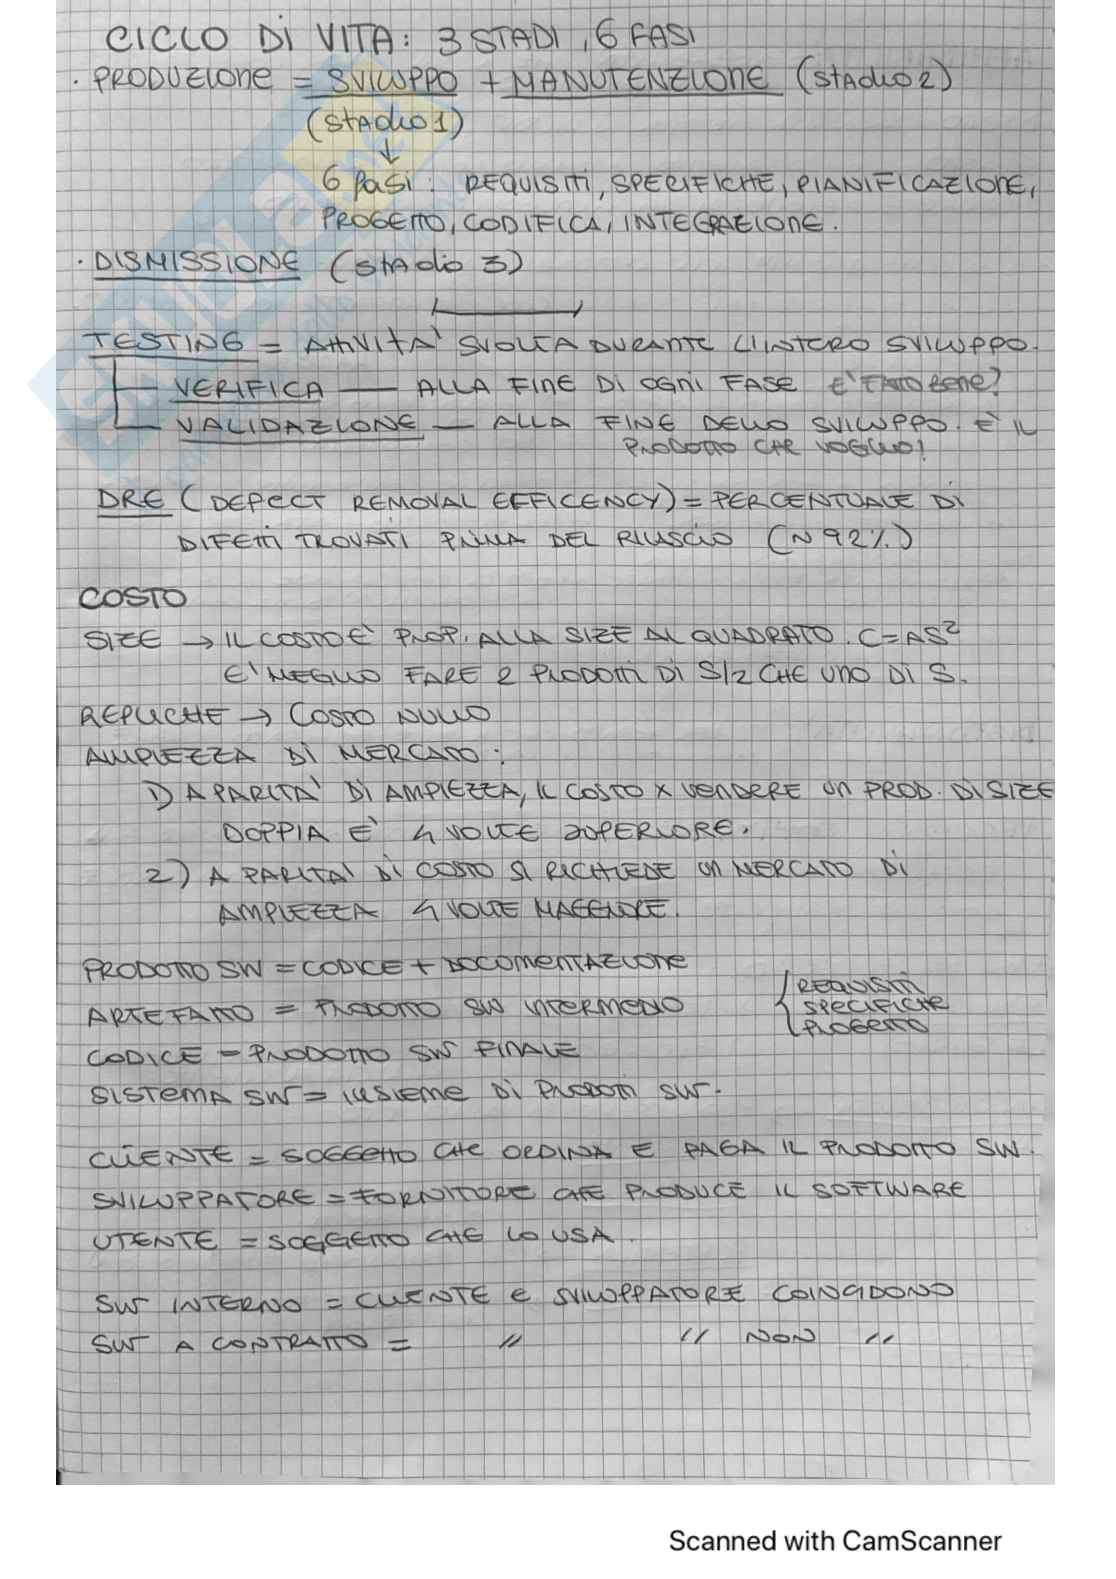 CICLO DI VITA: 3 STADI, 6 FASI
· PRODUZIONE = SVILUPPO + MANUTENZIONE (Stadio 2)
(Stadio 1)
↓
6 fasi: REQUISITI, SPECIFICHE, PIANIFICAZIONE,
PROGETTO, CODIFICA, INTEGRAZIONE.
· DISMISSIONE (Stadio 3)
TESTING = ATTIVITA' SVOLTA DURANTE L'INTERO SVILUPPO.
VERIFICA — ALLA FINE DI OGNI FASE E' FATTO BENE?
VALIDAZIONE — ALLA FINE DELLO SVILUPPO. E' IL
PRODOTTO CHE VOGLIO!
DRE (DEFECT REMOVAL EFFICENCY) = PERCENTUALE DI
DIFETTI TROVATI PRIMA DEL RILASCIO (~ 92%)
COSTO
SIZE → IL COSTO E' PROP. ALLA SIZE AL QUADRATO. C=AS²
E' MEGLIO FARE 2 PRODOTTI DI S/2 CHE UNO DI S.
REPLICHE → COSTO NULLO
AMPIEZZA DI MERCATO:
1) A PARITA' DI AMPIEZZA, IL COSTO X VENDERE UN PROD. DI SIZE
DOPPIA E' 4 VOLTE SUPERIORE.
2) A PARITA' DI COSTO SI RICHIEDE UN MERCATO DI
AMPIEZZA 4 VOLTE MAGGIORE.
PRODOTTO SW = CODICE + DOCUMENTAZIONE
ARTEFATTO = PRODOTTO SW INTERMEDIO { REQUISITI
SPECIFICHE
PROGETTO
CODICE = PRODOTTO SW FINALE
SISTEMA SW = INSIEME DI PRODOTTI SW.
CLIENTE = SOGGETTO CHE ORDINA E PAGA IL PRODOTTO SW.
SVILUPPATORE = FORNITORE CHE PRODUCE IL SOFTWARE
UTENTE = SOGGETTO CHE LO USA.
SW INTERNO = CLIENTE E SVILUPPATORE COINCIDONO
SW A CONTRATTO = " " NON "
Scanned with CamScanner